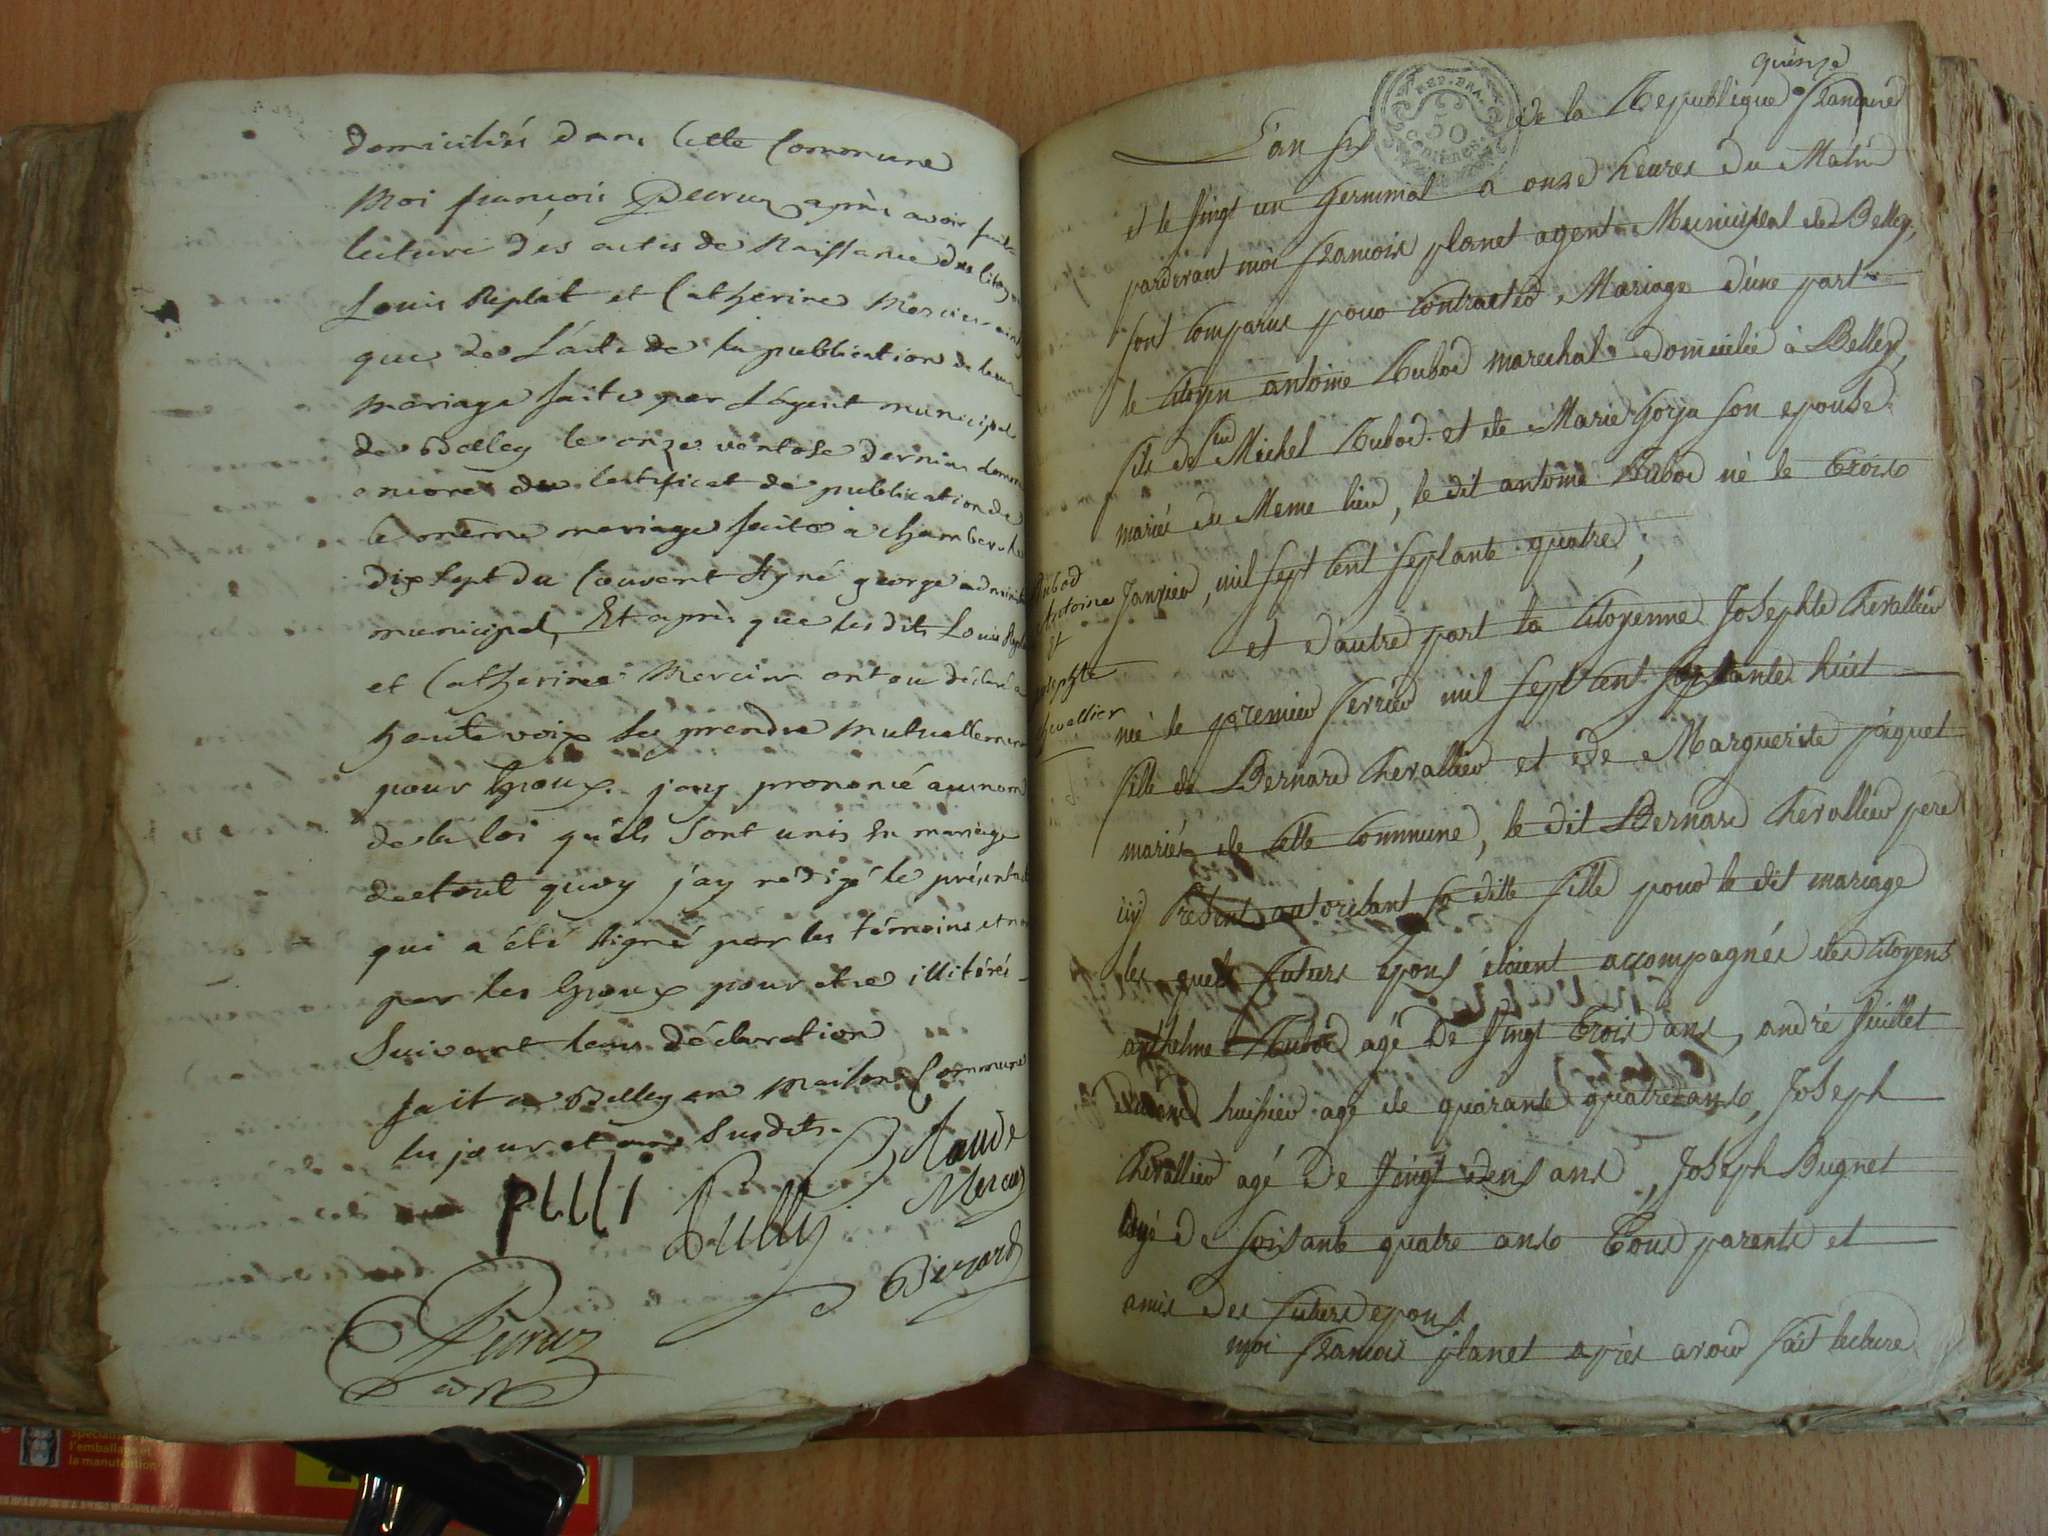 domiciliés dans cette Commune
Moi françois Peyruz après avoir fait
lecture dès actes de Naissance des Citoyens
Louis Replat et Catherine Mercier ainsi
que de L'acte de la publication de leur
mariage faite par L'agent municipal
de Belley le onze ventose dernier
encore du Certificat de publication de
le même mariage faite à chambery le
dix sept du Courent signé george administ
municipal, Et après que les dits Louis Replat
et Catherine Mercier ont eu déclaré a
haute voix se prendre mutuellement
pour Epoux. j'ay prononcé au nom
de la loi qu'ils sont unis En mariage
de tout quoy j'ay rédigé le présent acte
qui a été signé par les témoins et non
par les Epoux pour etre illitérés
Suivant leur déclaration
fait a Belley en Maison Commune
les jour et an Susdits.
Claude
Pully Mercier
Berard
quinze
L'an six de la Republique francaise
REP. FRA.
50
CENTIMES
et le vingt un germinal a onze heures du Matin
pardevant moi francois planet agent Municipal de Belley,
sont comparus pour contracter Mariage d'une part
le Citoyen antoine Rubod marechal domicilié à Belley,
fils de feu Michel Rubod et de Marie Gorja son epouse
mariés du Meme lieu, le dit antoine Rubod né le trois
Janvier, mil sept cent septante quatre;
Rubod
Antoine
et
Josephte
Chevallier
et d'autre part la Citoyenne Josephte Chevallier
née le premier fevrier mil sept cent septante huit
fille de Bernard Chevallier et de Marguerite paquet
mariés de cette Commune, le dit Bernard Chevallier pere
icy Présent autorisant sa ditte fille pour le dit mariage
les quels futurs epoux étoient accompagnés des Citoyens
anthelme Rubod agé de vingt trois ans, andré
huissier agé de quarante quatre ans, Joseph
Chevallier agé de vingt deux ans, Joseph Bugnet
agé de soixante quatre ans Tous parents et
amis des futurs epoux
moi francois planet après avoir fait lecture